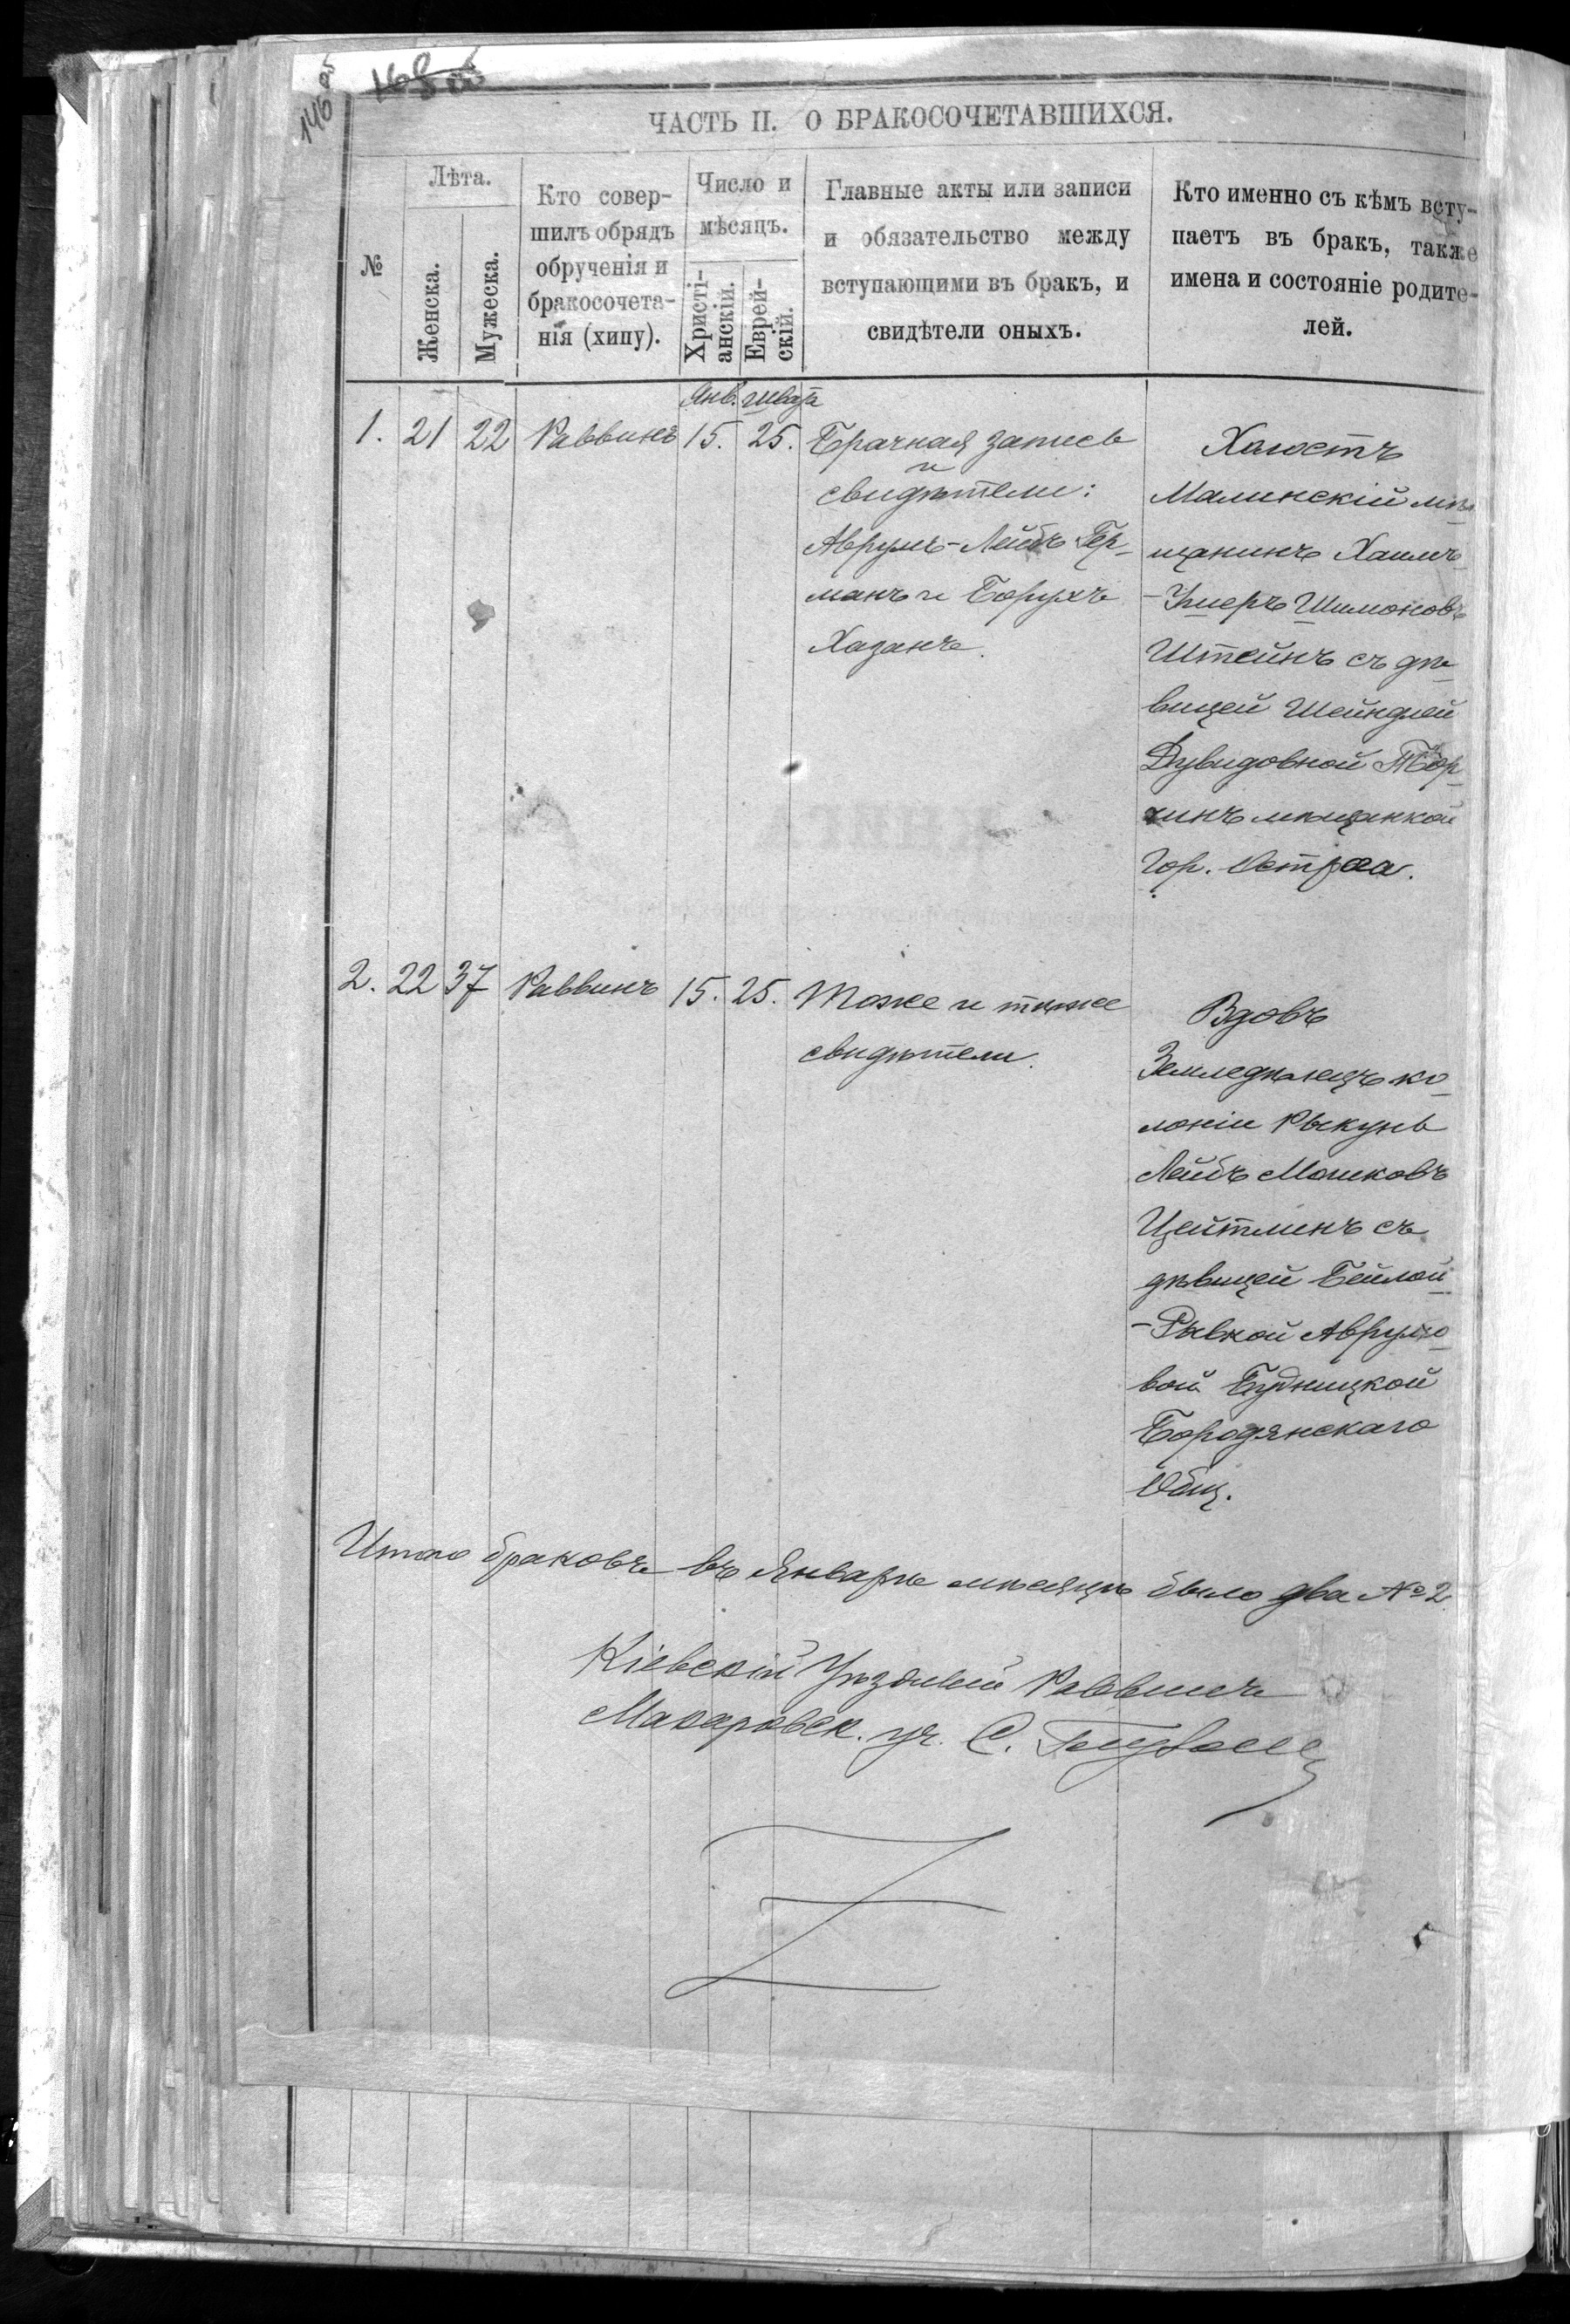 146 об
168 об
ЧАСТЬ II. О БРАКОСОЧЕТАВШИХСЯ.
№
Лѣта.
Женска.
Мужеска.
Кто совер-
шилъ обрядъ
обрученія и
бракосочета-
нія (хипу).
Число и
мѣсяцъ.
Христі-
анскій.
Еврей-
скій.
Главные акты или записи
и обязательство между
вступающими въ бракъ, и
свидѣтели оныхъ.
Кто именно съ кѣмъ всту-
паетъ въ бракъ, также
имена и состояніе родите-
лей.
Янв. шватъ
1. 21 22 Раввинъ 15. 25.
Брачная запись
и
свидѣтели:
Аврумъ-Лейбъ Гер-
манъ и Борухъ
Хазанъ.
Холостъ
Малинскій мѣ-
щанинъ Хаимъ-
-Умеръ Шимоновъ
Штейнъ съ дѣ-
вицей Шейндлей
Дувидовной
мѣщанкой
Гор. Остраа.
2. 22 37 Раввинъ 15. 25.
Тоже и тѣже
свидѣтели.
Вдовъ
Земледѣлецъ ко-
лоніи Рыкунь
Лейбъ Мошковъ
Цейтлинъ съ
дѣвицей Бейлой-
-Рывкой Аврумо-
вой Будницкой
Бородянскаго
Общ.
Итого браковъ въ Январѣ мѣсяцѣ было два № 2
Кіевскій Уѣздный Раввинъ
Макаровск. уч. С.